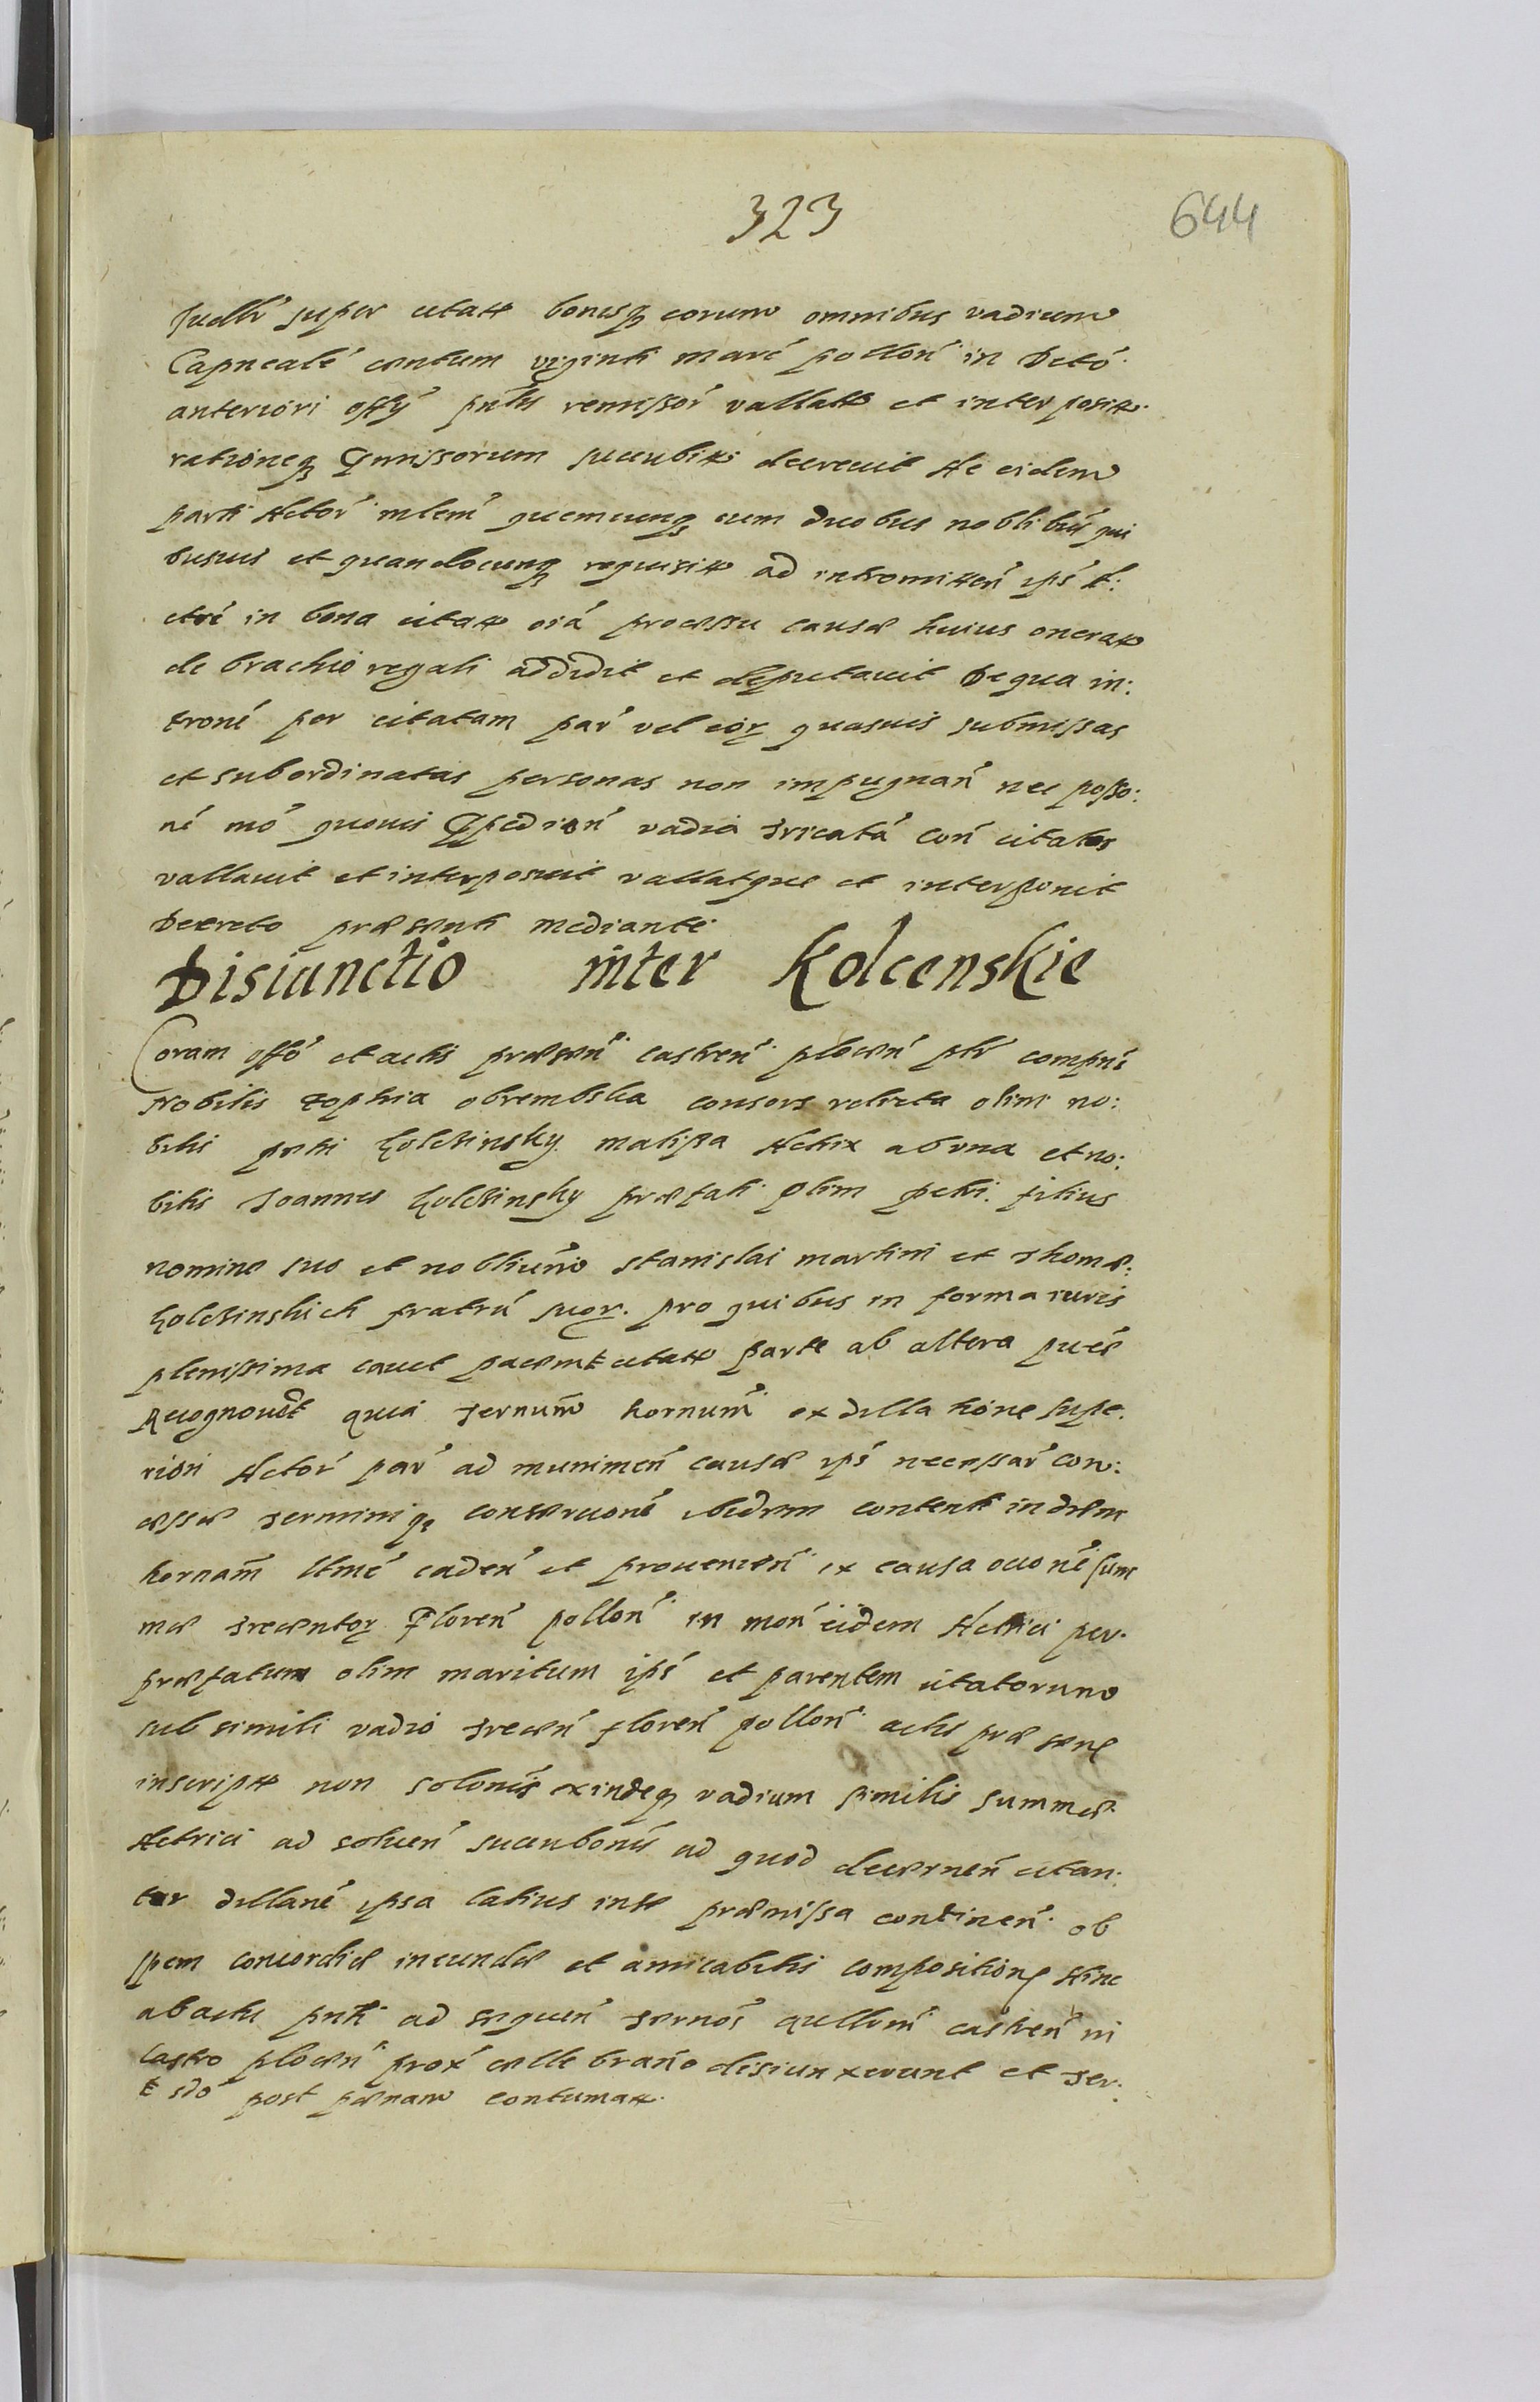 323
644
super citatt bonisq eorum omnibus vadium
Capneale centum viginti marc pollon in Dcto
anteriori offy remissor vallatt et interposit
rationeq pmissorum succubitt decrevit Ac eidem
parti Actor mlem quemcunq cum duobus noblibus qui
busuis et quandocunq requisit ad intromitten ips A:
ctri in bona citatt processu causæ huius onerat
de brachio regali addidit et deputauit De qua in:
trone per citatam par vel eor quasuis submissas
et subordinatas personas non impugnan nec posse:
ne mo quouis ppedien vadia con citatos
vallauit et interposuit vallatque et interponit
Decreto præsenti mediante
Disiunctio inter Kolcenskie
Coram offo et actis præsen castren plocen plr compns
Nobilis zophia obrembska consors relicta olim no:
bilis petri Kolczinsky Actrix ab vna et no:
bilis Joannes Kolczinsky præfati olim petri filius
nomine suo et noblium stanislai martini et Thomæ:
Kolczinskich fratru suor. pro quibus in forma iuris
plenissima cauet citatt parte ab altera
Recognouert quia Termum hornum ex dilla hone supe.
riori Actor par ad munimen causæ ips necessar con:
cessæ Terminiq conseruone ibidem content in diem
hornam caden et prouenien ex causa sum
mæ Trecentor Floren pollon in mon eidem Actrici per
præfatum olim maritum ips et parentem citatorum
sub simili vadio Trecen floren pollon actis præsen
inscript non solonis exindeq vadium similis summæ
Actrici ad soluen succubonis ad quod decernen citan:
tur dillane ipsa latius inse præmissa continen ob
spem concordiæ ineundæ et amicabilis composition Hinc
ab actu pnti ad sequen Termos qullrm castren in
Castro plocen prox cellebran disiunxerunt et Ter:
post pænam contumatt